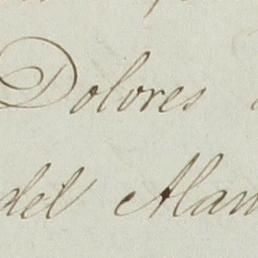 Dolores
del Alam